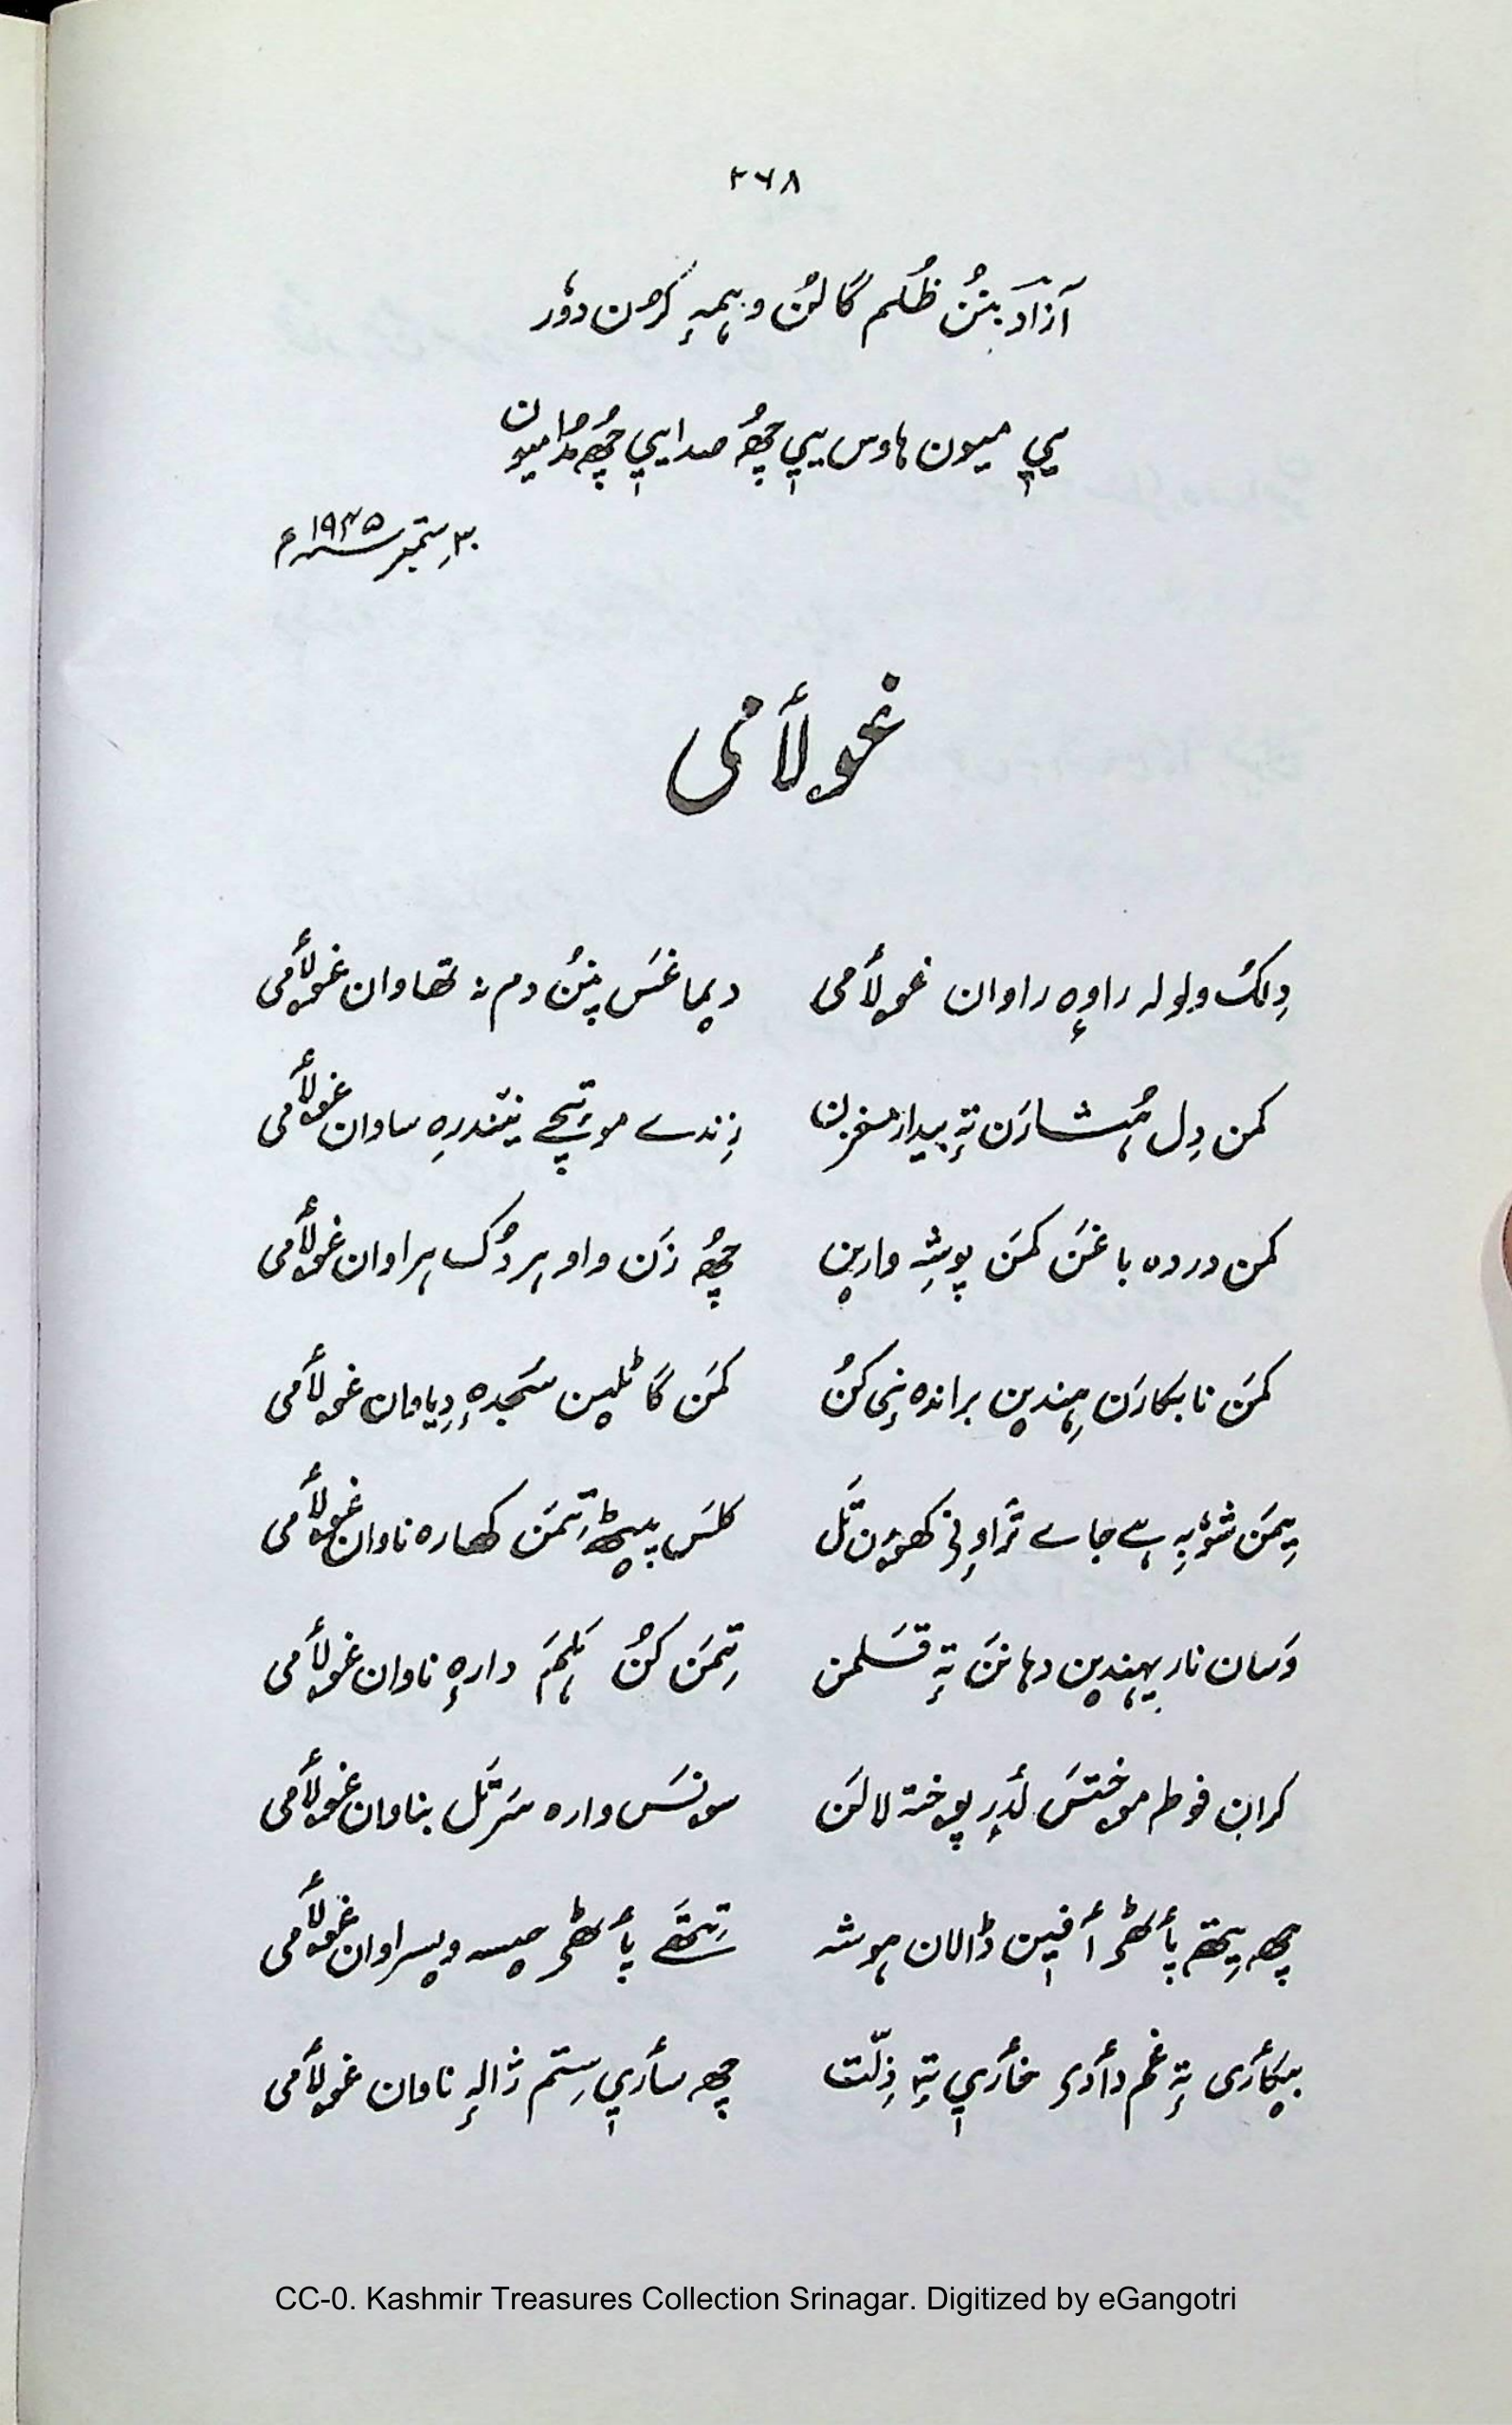 ۲۶۸
آزاد بنُن ظُلم گالُن وہمہٕ کرُن دوٗر
یی میون ہاوس یی چھُ صدا یی چھُ مُدا میون
۳۰ ستمبر ۱۹۴۵ء
غولأمی
دِلُک ولولہ راوٕہ راوان غولأمی دیماغس پنُن دم نہ تھاوان غولأمی
کمن دِل ہُشارَن تہٕ بیدار مغزن زِندے موتٕچے نیٚندرِہ ساوان غولأمی
کمن دردہ باغَن کمَن پوشہِ وارین چھُ زَن واو ہردُک ہراوان غولأمی
کمَن نابکارَن ہِندین براندہ نی کنُ کمَن گاٹلین سَجدہٕ دِیاوان غولأمی
یِمَن شوٗبہِ ہے جاے ترٛاونی کھۄرن تَل کلَس پیٹھ تِمَن کھارہ ناوان غولأمی
وَسان نار یہندین دہانَن تہٕ قَلمن تِمَن کُن ہَلَم دارہٕ ناوان غولأمی
کران فوطہ موختَس لَدِر پوختہ لالَن سونَس وارہ سَرتَل بناوان غولأمی
چھ یِتھہ پأٹھۍ أفین ڈالان ہوشہ تِتھَے پأٹھۍ حِسہ وِسراوان غولأمی
بیکأری تہٕ غم دأدی خأری تہٕ ذِلّت چھ سأری سِتم ژالہٕ ناوان غولأمی
CC-0. Kashmir Treasures Collection Srinagar. Digitized by eGangotri